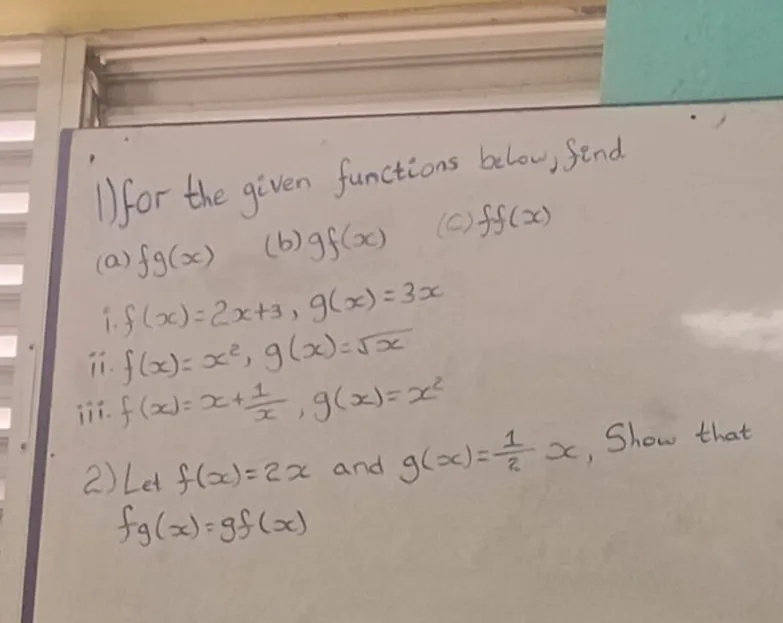 1) for the given functions below, find
(a) fg(x) (b) gf(x) (c) ff(x)
i. f(x)=2x+3, g(x)=3x
ii. f(x)=x², g(x)=√x
iii. f(x)=x+1/x, g(x)=x²
2) Let f(x)=2x and g(x)=1/2 x, Show that
fg(x)=gf(x)